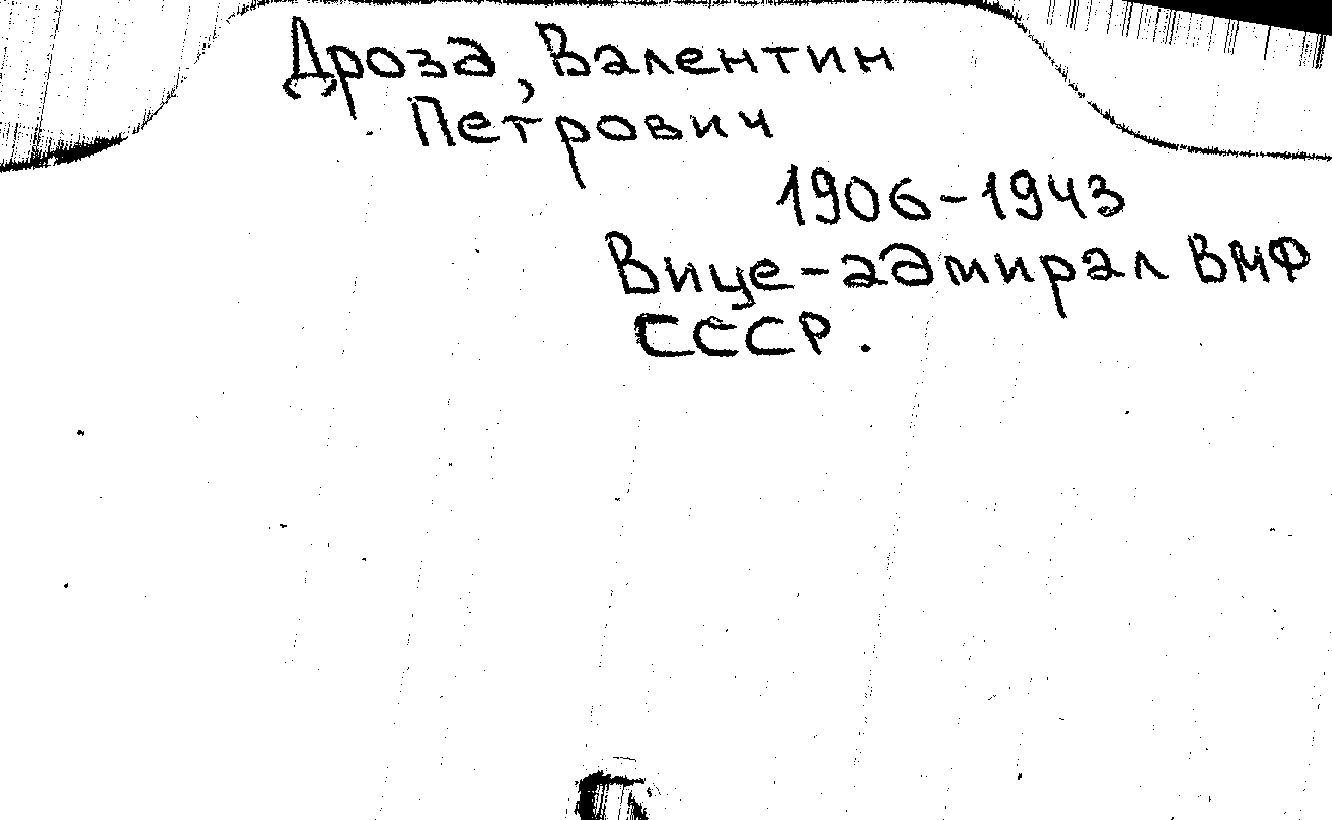 Дрозд, Валентин
Петрович
1906-1943
Вице-адмирал ВМФ
СССР.